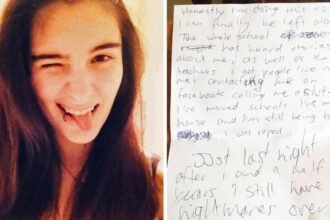 Honestly I'm doing this so
I can finally be left alone
The whole school
has heard stories
about me, as well as the
teachers I get people I've
met contacting me on
facebook calling me a slut
I've moved schools I've
house and I'm still being
I was raped
Just last night
after 1 and a half
years I still have
nightmares over